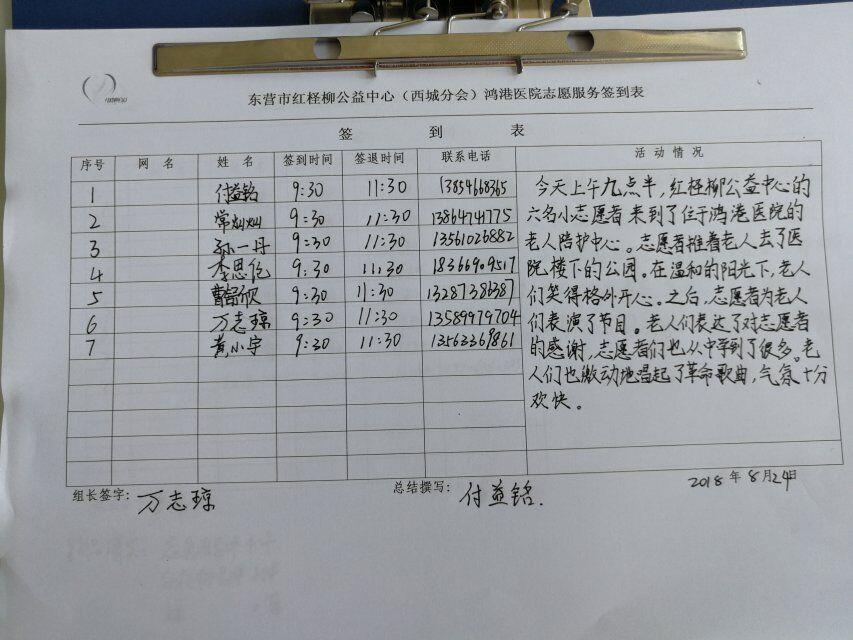 东营市红柽柳公益中心（西城分会）鸿港医院志愿服务签到表
签 到 表
序号 网 名 姓 名 签到时间 签退时间 联系电话 活 动 情 况
1 付益铭 9:30 11:30 13854668365
2 常灿灿 9:30 11:30 13864741775
3 孙一丹 9:30 11:30 13561026882
4 李思佗 9:30 11:30 18366909517
5 9:30 11:30 13287386387
6 万志琼 9:30 11:30 13589979704
7 黄小宇 9:30 11:30 13563369861
今天上午九点半，红柽柳公益中心的
六名小志愿者来到了位于鸿港医院的
老人陪护中心。志愿者推着老人去了医
院楼下的公园。在温和的阳光下，老人
们笑得格外开心。之后，志愿者为老人
们表演了节目。老人们表达了对志愿者
的感谢，志愿者们也从中学到了很多。老
人们也激动地唱起了革命歌曲，气氛十分
欢快。
组长签字：万志琼 总结撰写：付益铭.
2018 年 8月24日